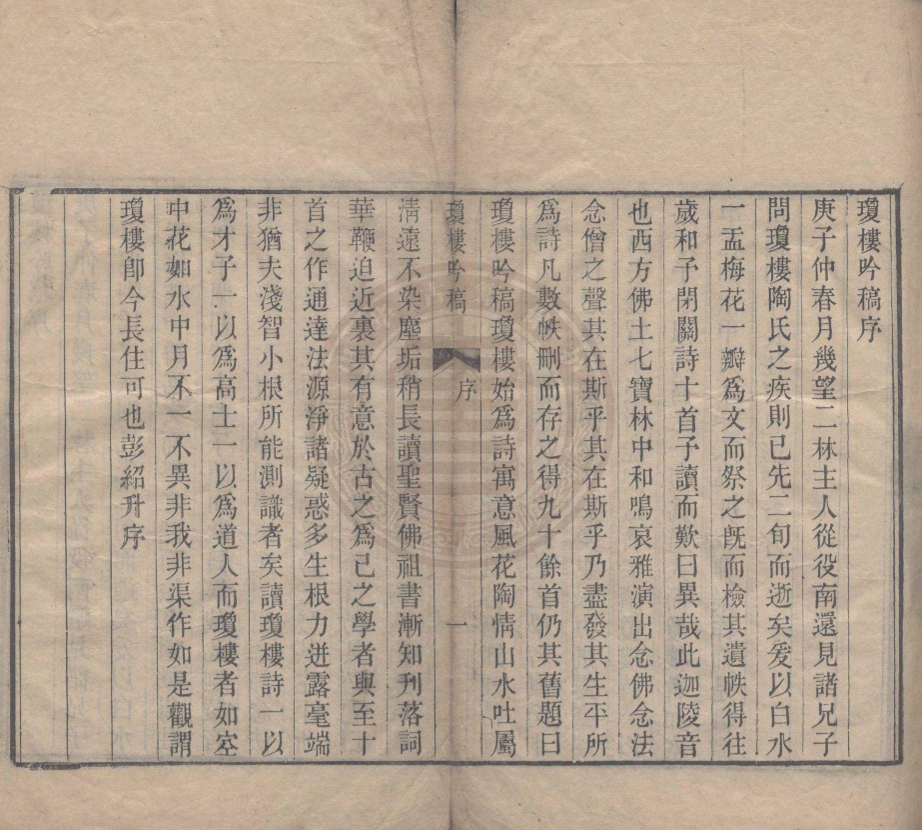 瓊樓吟稿序
庚子仲春月幾望二林主人從役南還見諸兄子
問瓊樓陶氏之疾則已先二旬而逝矣爰以白水
一盂梅花一瓣爲文而祭之既而檢其遺帙得往
歲和予閉關詩十首予讀而歎曰異哉此迦陵音
也西方佛土七寶林中和鳴哀雅演出念佛念法
念僧之聲其在斯乎其在斯乎乃盡發其生平所
爲詩凡數帙刪而存之得九十餘首仍其舊題曰
瓊樓吟稿瓊樓始爲詩寓意風花陶情山水吐屬
瓊樓吟稿 序 一
淸遠不染塵垢稍長讀聖賢佛祖書漸知刋落詞
華鞭迫近裏其有意於古之爲已之學者與至十
首之作通達法源淨諸疑惑多生根力迸露毫端
非猶夫淺智小根所能測識者矣讀瓊樓詩一以
爲才子一以爲高士一以爲道人而瓊樓者如空
中花如水中月不一不異非我非渠作如是觀謂
瓊樓卽今長住可也彭紹升序